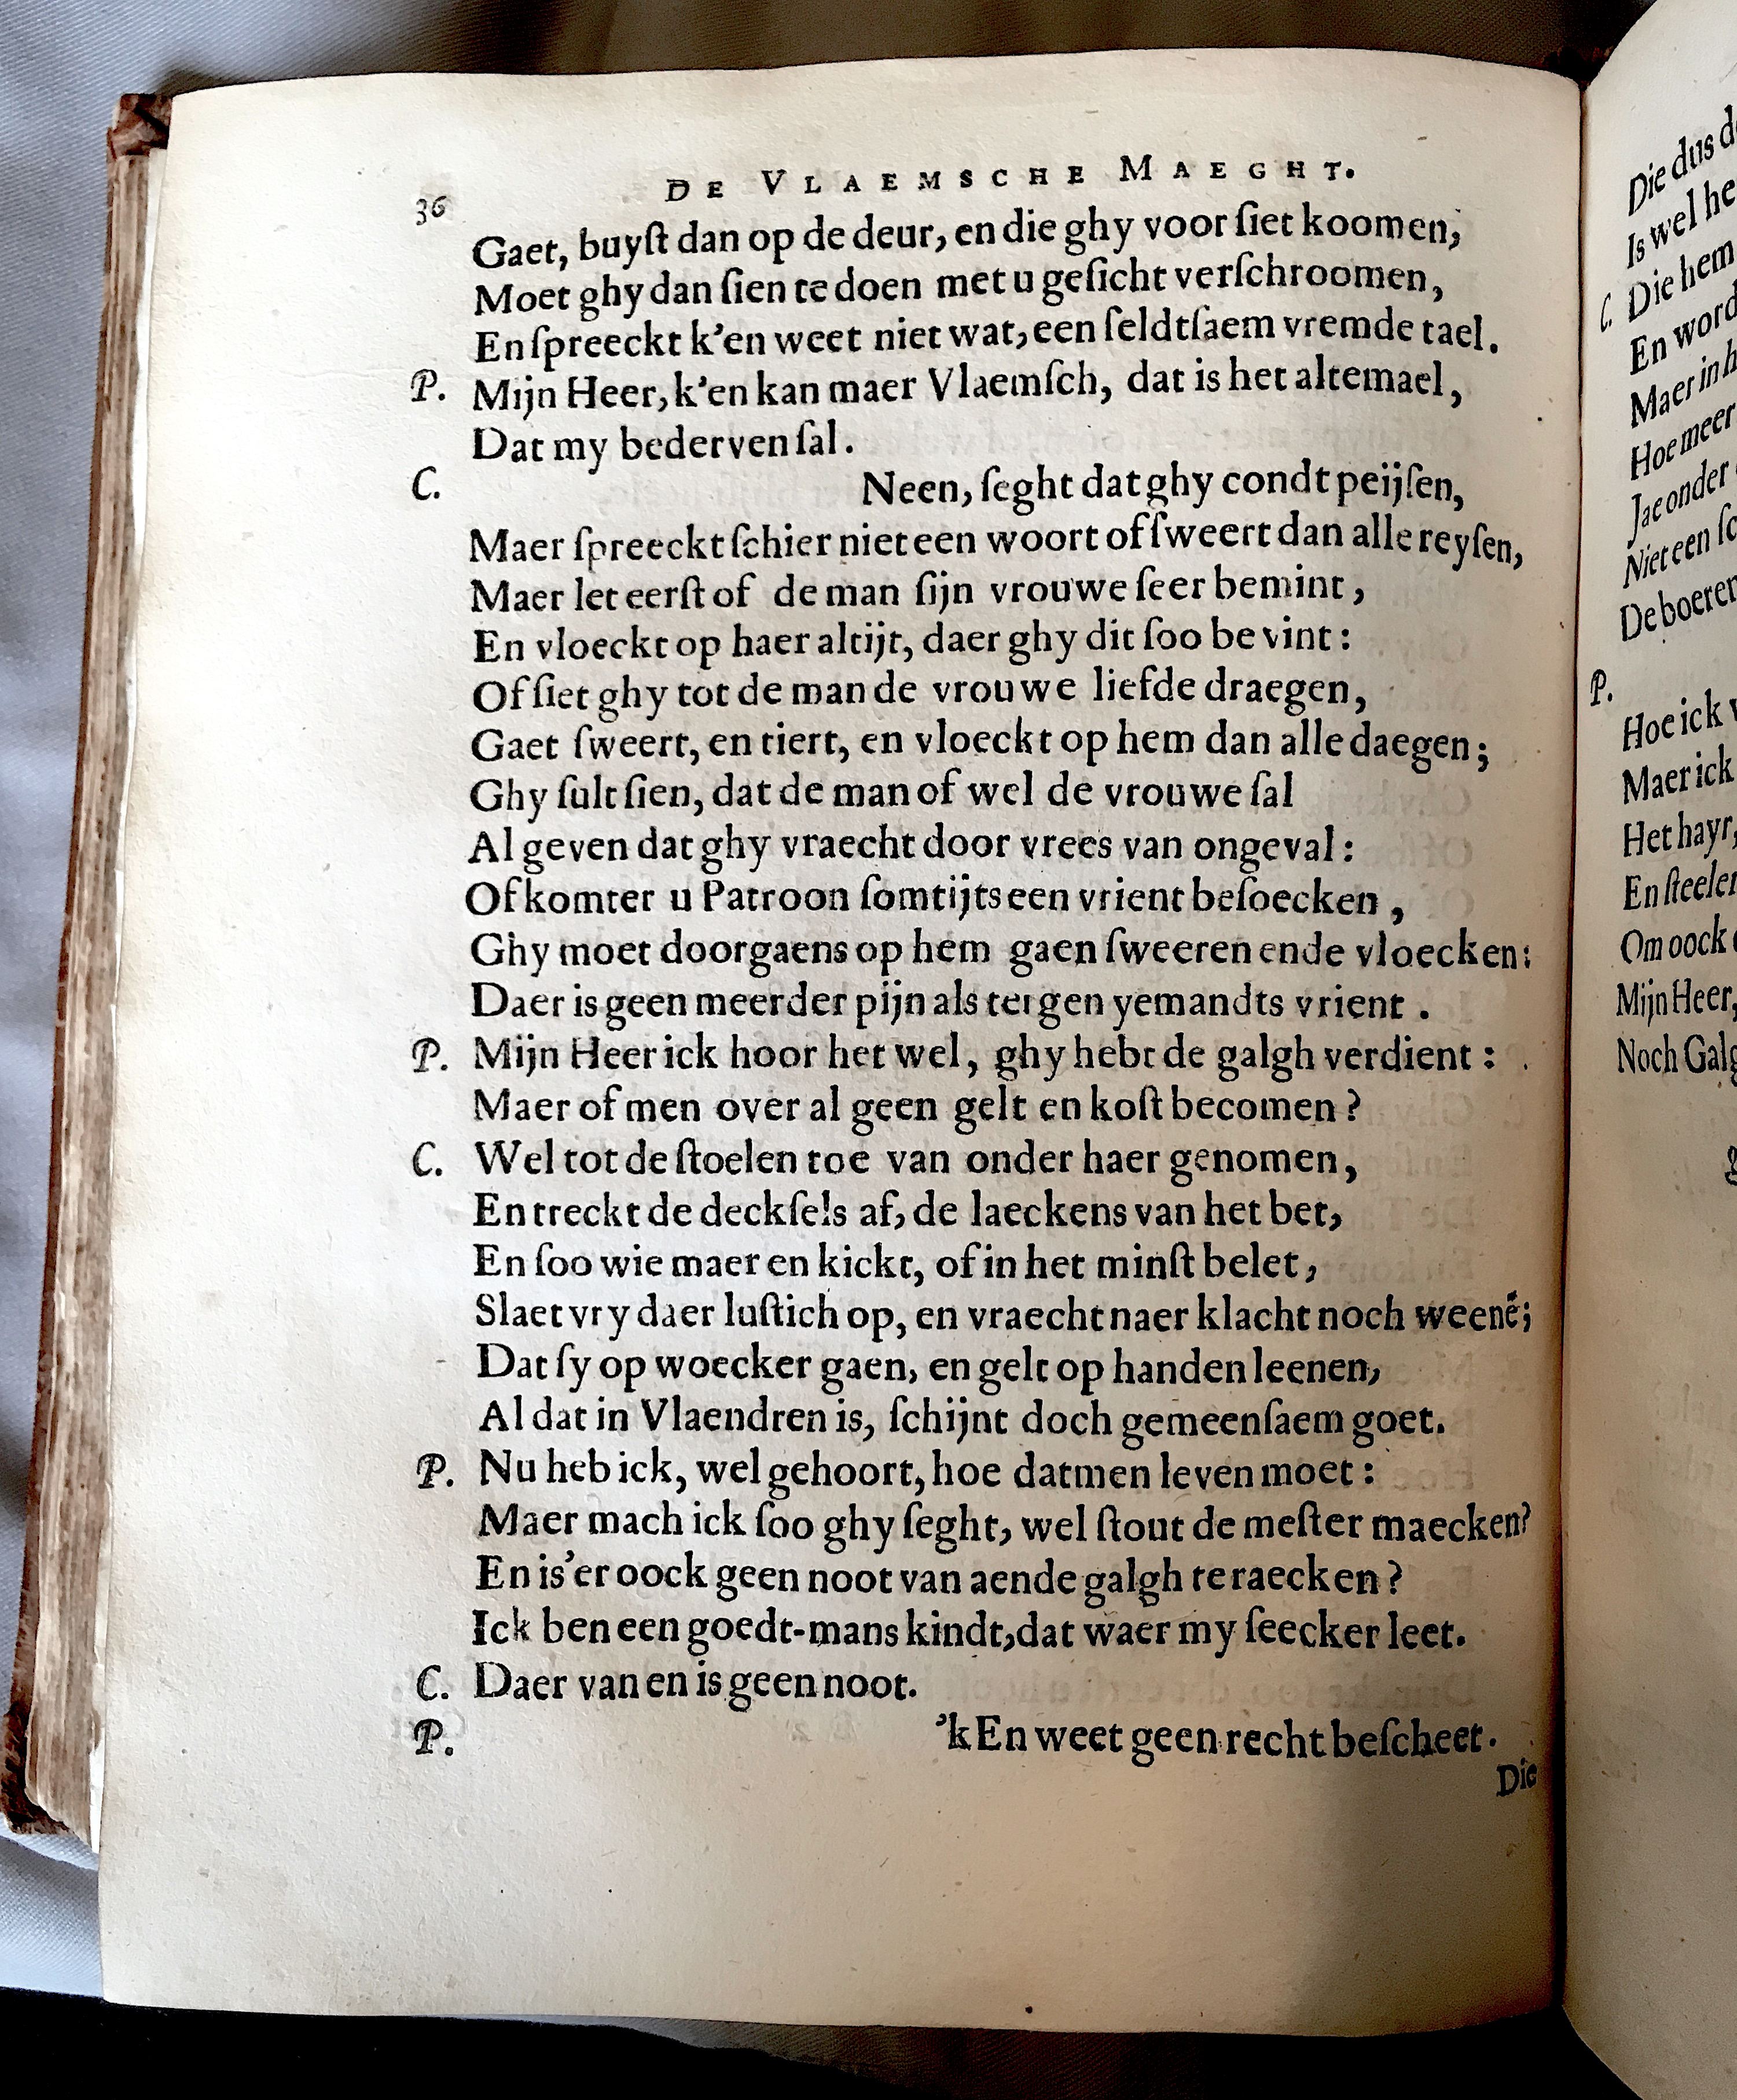 DE VLAEMSCHE MAEGHT.
36
Gaet, buyſt dan op de deur, en die ghy voor ſiet koomen,
Moet ghy dan ſien te doen met u geſicht verſchroomen,
En ſpreeckt k'en weet niet wat, een ſeldtſaem vremde tael.
P. Mijn Heer, k'en kan maer Vlaemſch, dat is het altemael,
Dat my bederven ſal.
C. Neen, ſeght dat ghy condt peijſen,
Maer ſpreeckt ſchier niet een woort of ſweert dan alle reyſen,
Maer let eerſt of de man ſijn vrouwe ſeer bemint,
En vloeckt op haer altijt, daer ghy dit ſoo bevint:
Of ſiet ghy tot de man de vrouwe liefde draegen,
Gaet ſweert, en tiert, en vloeckt op hem dan alle daegen;
Ghy ſult ſien, dat de man of wel de vrouwe ſal
Al geven dat ghy vraecht door vrees van ongeval:
Of komter u Patroon ſomtijts een vrient beſoecken,
Ghy moet doorgaens op hem gaen ſweeren ende vloecken:
Daer is geen meerder pijn als tergen yemandts vrient.
P. Mijn Heer ick hoor het wel, ghy hebt de galgh verdient:
Maer of men over al geen gelt en koſt becomen?
C. Wel tot de ſtoelen toe van onder haer genomen,
En treckt de deckſels af, de laeckens van het bet,
En ſoo wie maer en kickt, of in het minſt belet,
Slaet vry daer luſtich op, en vraecht naer klacht noch weenẽ;
Dat ſy op woecker gaen, en gelt op handen leenen,
Al dat in Vlaendren is, ſchijnt doch gemeenſaem goet.
P. Nu heb ick, wel gehoort, hoe datmen leven moet:
Maer mach ick ſoo ghy ſeght, wel ſtout de meſter maecken?
En is'er oock geen noot van aende galgh te raecken?
Ick ben een goedt-mans kindt, dat waer my ſeecker leet.
C. Daer van en is geen noot.
P. 'k En weet geen recht beſcheet.
Die
Die dus
Is wel
C. Die hem
En
Maer in
Hoe meer
Jae onder
Niet een
De boeren
P.
Hoe ick
Maer ick
Het hayr,
En
Om oock
Mijn Heer,
Noch